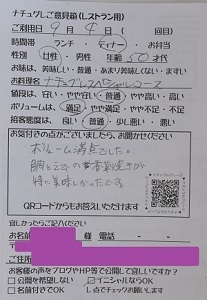 ナチュグルご意見箱(レストラン用)
ご利用日 9月4日( 回目)
時間帯 ・ランチ ・ディナー ・お弁当
女性・男性 年齢 50才代
お味は、美味しい・普通・あまり美味しくない・まずい
お料理名
値段は、安い・やや安い・普通・やや高い・高い
ボリュームは、満足・やや満足・やや不足・不足
接客態度は、良い・普通・少し悪い・悪い
お気付きの点がございましたら、お聞かせください
ボリューム満点でした。
特に美味しかったです
QRコードからもお答えいただけます
宜しかったらご記入ください
お名前 様 電話 -
ご住所
お客様の声をブログやHP等で公開して宜しいですか?
□公開を希望しない
イニシャルならOK
□名前付きでOK
□点でチェックお願いします